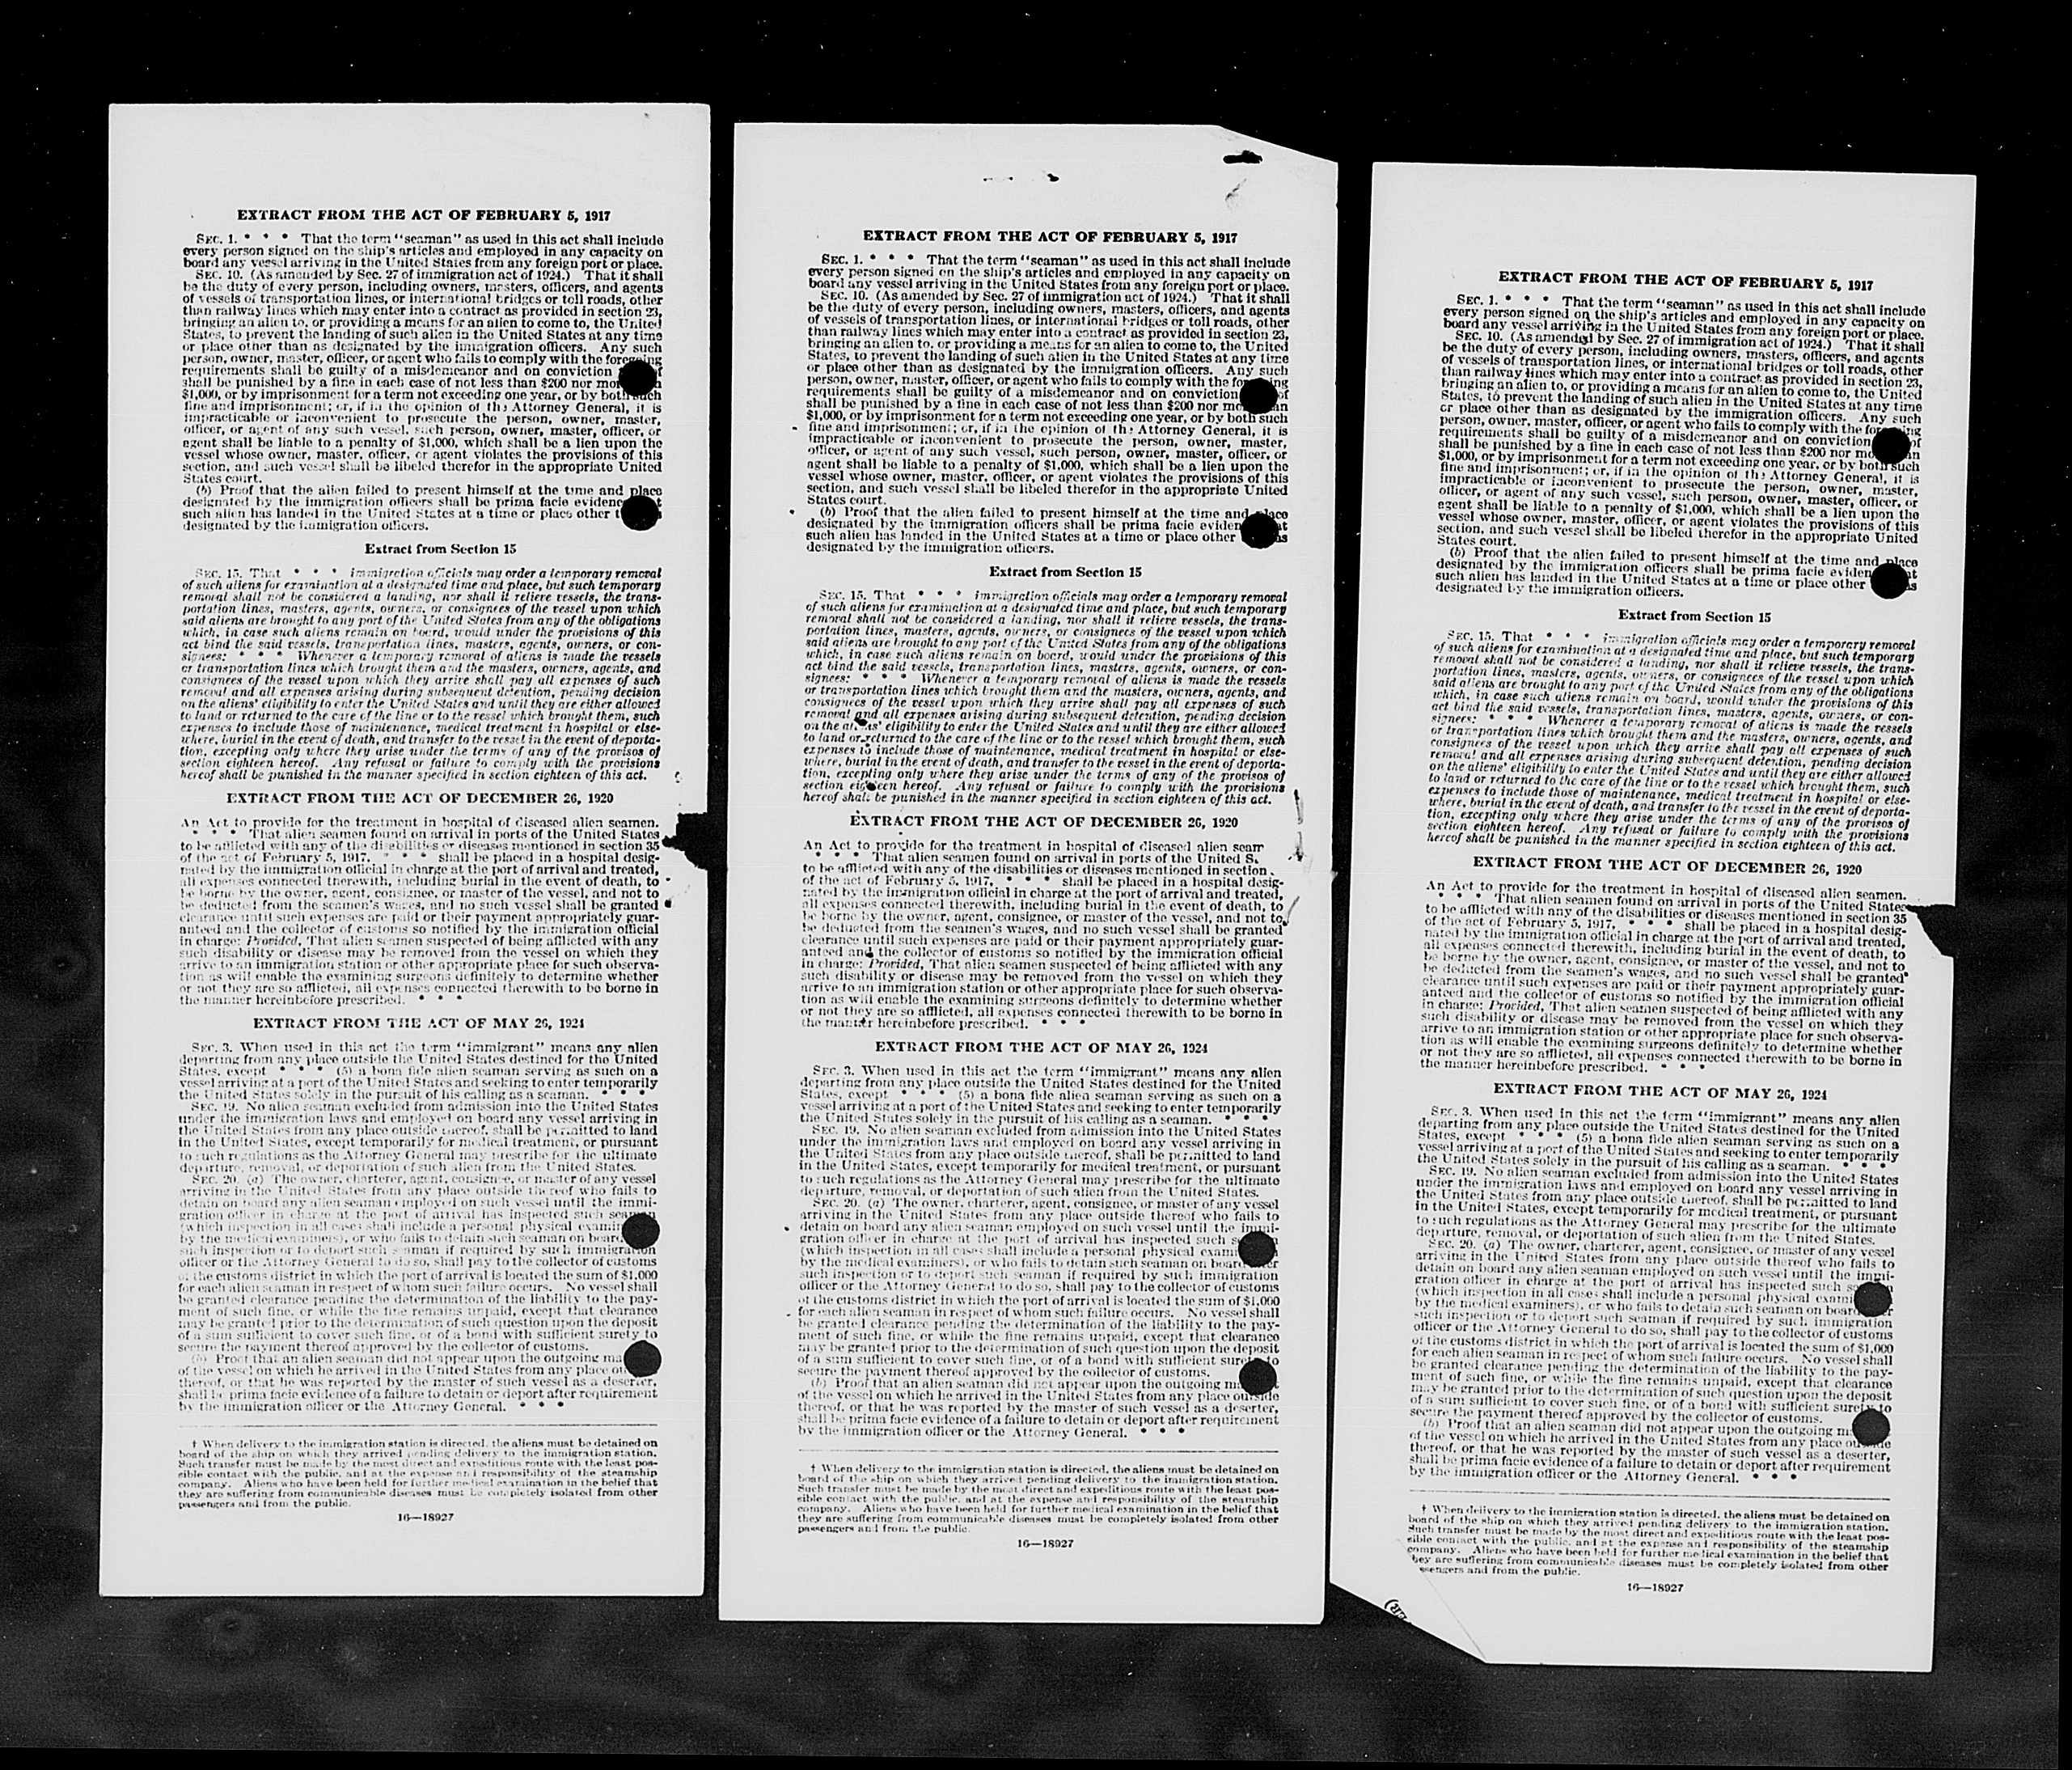 EXTRACT FROM THE ACT OF FEBRUARY 5, 1917
SEC. 1. * * * That the term "seaman" as used in this act shall include
every person signed on the ship's articles and employed in any capacity on
board any vessel arriving in the United States from any foreign port or place.
SEC. 10. (As amended by Sec. 27 of immigration act of 1924.) That it shall
be the duty of every person, including owners, masters, officers, and agents
of vessels of transportation lines, or international bridges or toll roads, other
than railway lines which may enter into a contract as provided in section 23,
bringing an alien to, or providing a means for an alien to come to, the United
States, to prevent the landing of such alien in the United States at any time
or place other than as designated by the immigration officers. Any such
person, owner, master, officer, or agent who fails to comply with the foregoing
requirements shall be guilty of a misdemeanor and on conviction
shall be punished by a fine in each case of not less than $200 nor
$1,000, or by imprisonment for a term not exceeding one year, or by both such
fine and imprisonment; or, if in the opinion of the Attorney General, it is
impracticable or inconvenient to prosecute the person, owner, master,
officer, or agent of any such vessel, such person, owner, master, officer, or
agent shall be liable to a penalty of $1,000, which shall be a lien upon the
vessel whose owner, master, officer, or agent violates the provisions of this
section, and such vessel shall be libeled therefor in the appropriate United
States court.
(b) Proof that the alien failed to present himself at the time and place
designated by the immigration officers shall be prima facie
such alien has landed in the United States at a time or place other
designated by the immigration officers.
Extract from Section 15
SEC. 15. That * * * immigration officials may order a temporary removal
of such aliens for examination at a designated time and place, but such temporary
removal shall not be considered a landing, nor shall it relieve vessels, the trans-
portation lines, masters, agents, owners, or consignees of the vessel upon which
said aliens are brought to any port of the United States from any of the obligations
which, in case such aliens remain on board, would under the provisions of this
act bind the said vessels, transportation lines, masters, agents, owners, or con-
signees: * * * Whenever a temporary removal of aliens is made the vessels
or transportation lines which brought them and the masters, owners, agents, and
consignees of the vessel upon which they arrive shall pay all expenses of such
removal and all expenses arising during subsequent detention, pending decision
on the aliens' eligibility to enter the United States and until they are either allowed
to land or returned to the care of the line or to the vessel which brought them, such
expenses to include those of maintenance, medical treatment in hospital or else-
where, burial in the event of death, and transfer to the vessel in the event of deporta-
tion, excepting only where they arise under the terms of any of the provisos of
section eighteen hereof. Any refusal or failure to comply with the provisions
hereof shall be punished in the manner specified in section eighteen of this act.
EXTRACT FROM THE ACT OF DECEMBER 26, 1920
An Act to provide for the treatment in hospital of diseased alien seamen.
* * * That alien seamen found on arrival in ports of the United States
to be afflicted with any of the disabilities or diseases mentioned in section 35
of the act of February 5, 1917, * * * shall be placed in a hospital desig-
nated by the immigration official in charge at the port of arrival and treated,
all expenses connected therewith, including burial in the event of death, to
be borne by the owner, agent, consignee, or master of the vessel, and not to
be deducted from the seamen's wages, and no such vessel shall be granted
clearance until such expenses are paid or their payment appropriately guar-
anteed and the collector of customs so notified by the immigration official
in charge: Provided, That alien seamen suspected of being afflicted with any
such disability or disease may be removed from the vessel on which they
arrive to an immigration station or other appropriate place for such observa-
tion as will enable the examining surgeons definitely to determine whether
or not they are so afflicted, all expenses connected therewith to be borne in
the manner hereinbefore prescribed. * * *
EXTRACT FROM THE ACT OF MAY 26, 1924
SEC. 3. When used in this act the term "immigrant" means any alien
departing from any place outside the United States destined for the United
States, except * * * (5) a bona fide alien seaman serving as such on a
vessel arriving at a port of the United States and seeking to enter temporarily
the United States solely in the pursuit of his calling as a seaman. * * *
SEC. 19. No alien seaman excluded from admission into the United States
under the immigration laws and employed on board any vessel arriving in
the United States from any place outside thereof, shall be permitted to land
in the United States, except temporarily for medical treatment, or pursuant
to such regulations as the Attorney General may prescribe for the ultimate
departure, removal, or deportation of such alien from the United States.
SEC. 20. (a) The owner, charterer, agent, consignee, or master of any vessel
arriving in the United States from any place outside thereof who fails to
detain on board any alien seaman employed on such vessel until the immi-
gration officer in charge at the port of arrival has inspected such seaman
(which inspection in all cases shall include a personal physical
by the medical examiners), or who fails to detain such seaman on board
such inspection or to deport such seaman if required by such immigration
officer or the Attorney General to do so, shall pay to the collector of customs
of the customs district in which the port of arrival is located the sum of $1,000
for each alien seaman in respect of whom such failure occurs. No vessel shall
be granted clearance pending the determination of the liability to the pay-
ment of such fine, or while the fine remains unpaid, except that clearance
may be granted prior to the determination of such question upon the deposit
of a sum sufficient to cover such fine, or of a bond with sufficient surety to
secure the payment thereof approved by the collector of customs.
(b) Proof that an alien seaman did not appear upon the outgoing
of the vessel on which he arrived in the United States from any place
thereof, or that he was reported by the master of such vessel as a deserter,
shall be prima facie evidence of a failure to detain or deport after requirement
by the immigration officer or the Attorney General. * * *
† When delivery to the immigration station is directed, the aliens must be detained on
board of the ship on which they arrived pending delivery to the immigration station.
Such transfer must be made by the most direct and expeditious route with the least pos-
sible contact with the public, and at the expense and responsibility of the steamship
company. Aliens who have been held for further medical examination in the belief that
they are suffering from communicable diseases must be completely isolated from other
passengers and from the public.
16—18927
EXTRACT FROM THE ACT OF FEBRUARY 5, 1917
SEC. 1. * * * That the term "seaman" as used in this act shall include
every person signed on the ship's articles and employed in any capacity on
board any vessel arriving in the United States from any foreign port or place.
SEC. 10. (As amended by Sec. 27 of immigration act of 1924.) That it shall
be the duty of every person, including owners, masters, officers, and agents
of vessels of transportation lines, or international bridges or toll roads, other
than railway lines which may enter into a contract as provided in section 23,
bringing an alien to, or providing a means for an alien to come to, the United
States, to prevent the landing of such alien in the United States at any time
or place other than as designated by the immigration officers. Any such
person, owner, master, officer, or agent who fails to comply with the
requirements shall be guilty of a misdemeanor and on conviction of
shall be punished by a fine in each case of not less than $200 nor
$1,000, or by imprisonment for a term not exceeding one year, or by both such
fine and imprisonment; or, if in the opinion of the Attorney General, it is
impracticable or inconvenient to prosecute the person, owner, master,
officer, or agent of any such vessel, such person, owner, master, officer, or
agent shall be liable to a penalty of $1,000, which shall be a lien upon the
vessel whose owner, master, officer, or agent violates the provisions of this
section, and such vessel shall be libeled therefor in the appropriate United
States court.
(b) Proof that the alien failed to present himself at the time and place
designated by the immigration officers shall be prima facie
such alien has landed in the United States at a time or place other
designated by the immigration officers.
Extract from Section 15
SEC. 15. That * * * immigration officials may order a temporary removal
of such aliens for examination at a designated time and place, but such temporary
removal shall not be considered a landing, nor shall it relieve vessels, the trans-
portation lines, masters, agents, owners, or consignees of the vessel upon which
said aliens are brought to any port of the United States from any of the obligations
which, in case such aliens remain on board, would under the provisions of this
act bind the said vessels, transportation lines, masters, agents, owners, or con-
signees: * * * Whenever a temporary removal of aliens is made the vessels
or transportation lines which brought them and the masters, owners, agents, and
consignees of the vessel upon which they arrive shall pay all expenses of such
removal and all expenses arising during subsequent detention, pending decision
on the aliens' eligibility to enter the United States and until they are either allowed
to land or returned to the care of the line or to the vessel which brought them, such
expenses to include those of maintenance, medical treatment in hospital or else-
where, burial in the event of death, and transfer to the vessel in the event of deporta-
tion, excepting only where they arise under the terms of any of the provisos of
section eighteen hereof. Any refusal or failure to comply with the provisions
hereof shall be punished in the manner specified in section eighteen of this act.
EXTRACT FROM THE ACT OF DECEMBER 26, 1920
An Act to provide for the treatment in hospital of diseased alien
* * * That alien seamen found on arrival in ports of the United
to be afflicted with any of the disabilities or diseases mentioned in section
of the act of February 5, 1917, * * * shall be placed in a hospital desig-
nated by the immigration official in charge at the port of arrival and treated,
all expenses connected therewith, including burial in the event of death, to
be borne by the owner, agent, consignee, or master of the vessel, and not to
be deducted from the seamen's wages, and no such vessel shall be granted
clearance until such expenses are paid or their payment appropriately guar-
anteed and the collector of customs so notified by the immigration official
in charge: Provided, That alien seamen suspected of being afflicted with any
such disability or disease may be removed from the vessel on which they
arrive to an immigration station or other appropriate place for such observa-
tion as will enable the examining surgeons definitely to determine whether
or not they are so afflicted, all expenses connected therewith to be borne in
the manner hereinbefore prescribed. * * *
EXTRACT FROM THE ACT OF MAY 26, 1924
SEC. 3. When used in this act the term "immigrant" means any alien
departing from any place outside the United States destined for the United
States, except * * * (5) a bona fide alien seaman serving as such on a
vessel arriving at a port of the United States and seeking to enter temporarily
the United States solely in the pursuit of his calling as a seaman. * * *
SEC. 19. No alien seaman excluded from admission into the United States
under the immigration laws and employed on board any vessel arriving in
the United States from any place outside thereof, shall be permitted to land
in the United States, except temporarily for medical treatment, or pursuant
to such regulations as the Attorney General may prescribe for the ultimate
departure, removal, or deportation of such alien from the United States.
SEC. 20. (a) The owner, charterer, agent, consignee, or master of any vessel
arriving in the United States from any place outside thereof who fails to
detain on board any alien seaman employed on such vessel until the immi-
gration officer in charge at the port of arrival has inspected such
(which inspection in all cases shall include a personal physical
by the medical examiners), or who fails to detain such seaman on board
such inspection or to deport such seaman if required by such immigration
officer or the Attorney General to do so, shall pay to the collector of customs
of the customs district in which the port of arrival is located the sum of $1,000
for each alien seaman in respect of whom such failure occurs. No vessel shall
be granted clearance pending the determination of the liability to the pay-
ment of such fine, or while the fine remains unpaid, except that clearance
may be granted prior to the determination of such question upon the deposit
of a sum sufficient to cover such fine, or of a bond with sufficient surety to
secure the payment thereof approved by the collector of customs.
(b) Proof that an alien seaman did not appear upon the outgoing
of the vessel on which he arrived in the United States from any place outside
thereof, or that he was reported by the master of such vessel as a deserter,
shall be prima facie evidence of a failure to detain or deport after requirement
by the immigration officer or the Attorney General. * * *
† When delivery to the immigration station is directed, the aliens must be detained on
board of the ship on which they arrived pending delivery to the immigration station.
Such transfer must be made by the most direct and expeditious route with the least pos-
sible contact with the public, and at the expense and responsibility of the steamship
company. Aliens who have been held for further medical examination in the belief that
they are suffering from communicable diseases must be completely isolated from other
passengers and from the public.
16—18927
EXTRACT FROM THE ACT OF FEBRUARY 5, 1917
SEC. 1. * * * That the term "seaman" as used in this act shall include
every person signed on the ship's articles and employed in any capacity on
board any vessel arriving in the United States from any foreign port or place.
SEC. 10. (As amended by Sec. 27 of immigration act of 1924.) That it shall
be the duty of every person, including owners, masters, officers, and agents
of vessels of transportation lines, or international bridges or toll roads, other
than railway lines which may enter into a contract as provided in section 23,
bringing an alien to, or providing a means for an alien to come to, the United
States, to prevent the landing of such alien in the United States at any time
or place other than as designated by the immigration officers. Any such
person, owner, master, officer, or agent who fails to comply with the
requirements shall be guilty of a misdemeanor and on conviction of
shall be punished by a fine in each case of not less than $200 nor
$1,000, or by imprisonment for a term not exceeding one year, or by both such
fine and imprisonment; or, if in the opinion of the Attorney General, it is
impracticable or inconvenient to prosecute the person, owner, master,
officer, or agent of any such vessel, such person, owner, master, officer, or
agent shall be liable to a penalty of $1,000, which shall be a lien upon the
vessel whose owner, master, officer, or agent violates the provisions of this
section, and such vessel shall be libeled therefor in the appropriate United
States court.
(b) Proof that the alien failed to present himself at the time and place
designated by the immigration officers shall be prima facie
such alien has landed in the United States at a time or place other
designated by the immigration officers.
Extract from Section 15
SEC. 15. That * * * immigration officials may order a temporary removal
of such aliens for examination at a designated time and place, but such temporary
removal shall not be considered a landing, nor shall it relieve vessels, the trans-
portation lines, masters, agents, owners, or consignees of the vessel upon which
said aliens are brought to any port of the United States from any of the obligations
which, in case such aliens remain on board, would under the provisions of this
act bind the said vessels, transportation lines, masters, agents, owners, or con-
signees: * * * Whenever a temporary removal of aliens is made the vessels
or transportation lines which brought them and the masters, owners, agents, and
consignees of the vessel upon which they arrive shall pay all expenses of such
removal and all expenses arising during subsequent detention, pending decision
on the aliens' eligibility to enter the United States and until they are either allowed
to land or returned to the care of the line or to the vessel which brought them, such
expenses to include those of maintenance, medical treatment in hospital or else-
where, burial in the event of death, and transfer to the vessel in the event of deporta-
tion, excepting only where they arise under the terms of any of the provisos of
section eighteen hereof. Any refusal or failure to comply with the provisions
hereof shall be punished in the manner specified in section eighteen of this act.
EXTRACT FROM THE ACT OF DECEMBER 26, 1920
An Act to provide for the treatment in hospital of diseased alien seamen.
* * * That alien seamen found on arrival in ports of the United States
to be afflicted with any of the disabilities or diseases mentioned in section 35
of the act of February 5, 1917, * * * shall be placed in a hospital desig-
nated by the immigration official in charge at the port of arrival and treated,
all expenses connected therewith, including burial in the event of death, to
be borne by the owner, agent, consignee, or master of the vessel, and not to
be deducted from the seamen's wages, and no such vessel shall be granted
clearance until such expenses are paid or their payment appropriately guar-
anteed and the collector of customs so notified by the immigration official
in charge: Provided, That alien seamen suspected of being afflicted with any
such disability or disease may be removed from the vessel on which they
arrive to an immigration station or other appropriate place for such observa-
tion as will enable the examining surgeons definitely to determine whether
or not they are so afflicted, all expenses connected therewith to be borne in
the manner hereinbefore prescribed. * * *
EXTRACT FROM THE ACT OF MAY 26, 1924
SEC. 3. When used in this act the term "immigrant" means any alien
departing from any place outside the United States destined for the United
States, except * * * (5) a bona fide alien seaman serving as such on a
vessel arriving at a port of the United States and seeking to enter temporarily
the United States solely in the pursuit of his calling as a seaman. * * *
SEC. 19. No alien seaman excluded from admission into the United States
under the immigration laws and employed on board any vessel arriving in
the United States from any place outside thereof, shall be permitted to land
in the United States, except temporarily for medical treatment, or pursuant
to such regulations as the Attorney General may prescribe for the ultimate
departure, removal, or deportation of such alien from the United States.
SEC. 20. (a) The owner, charterer, agent, consignee, or master of any vessel
arriving in the United States from any place outside thereof who fails to
detain on board any alien seaman employed on such vessel until the immi-
gration officer in charge at the port of arrival has inspected such
(which inspection in all cases shall include a personal physical
by the medical examiners), or who fails to detain such seaman on board
such inspection or to deport such seaman if required by such immigration
officer or the Attorney General to do so, shall pay to the collector of customs
of the customs district in which the port of arrival is located the sum of $1,000
for each alien seaman in respect of whom such failure occurs. No vessel shall
be granted clearance pending the determination of the liability to the pay-
ment of such fine, or while the fine remains unpaid, except that clearance
may be granted prior to the determination of such question upon the deposit
of a sum sufficient to cover such fine, or of a bond with sufficient surety to
secure the payment thereof approved by the collector of customs.
(b) Proof that an alien seaman did not appear upon the outgoing
of the vessel on which he arrived in the United States from any place
thereof, or that he was reported by the master of such vessel as a deserter,
shall be prima facie evidence of a failure to detain or deport after requirement
by the immigration officer or the Attorney General. * * *
† When delivery to the immigration station is directed, the aliens must be detained on
board of the ship on which they arrived pending delivery to the immigration station.
Such transfer must be made by the most direct and expeditious route with the least pos-
sible contact with the public, and at the expense and responsibility of the steamship
company. Aliens who have been held for further medical examination in the belief that
they are suffering from communicable diseases must be completely isolated from other
passengers and from the public.
16—18927